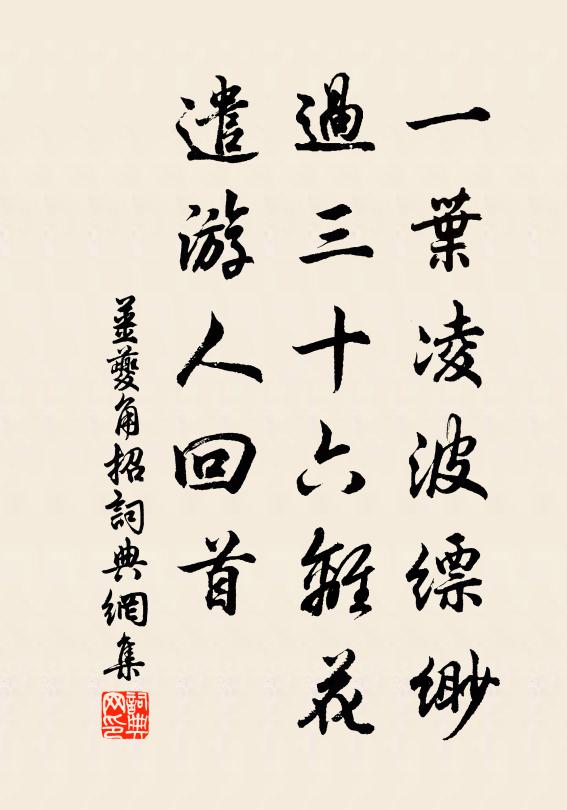 一葉凌波縹緲
過三十六離花
遣游人回首
薑夔角招詞典網集
詞典网印